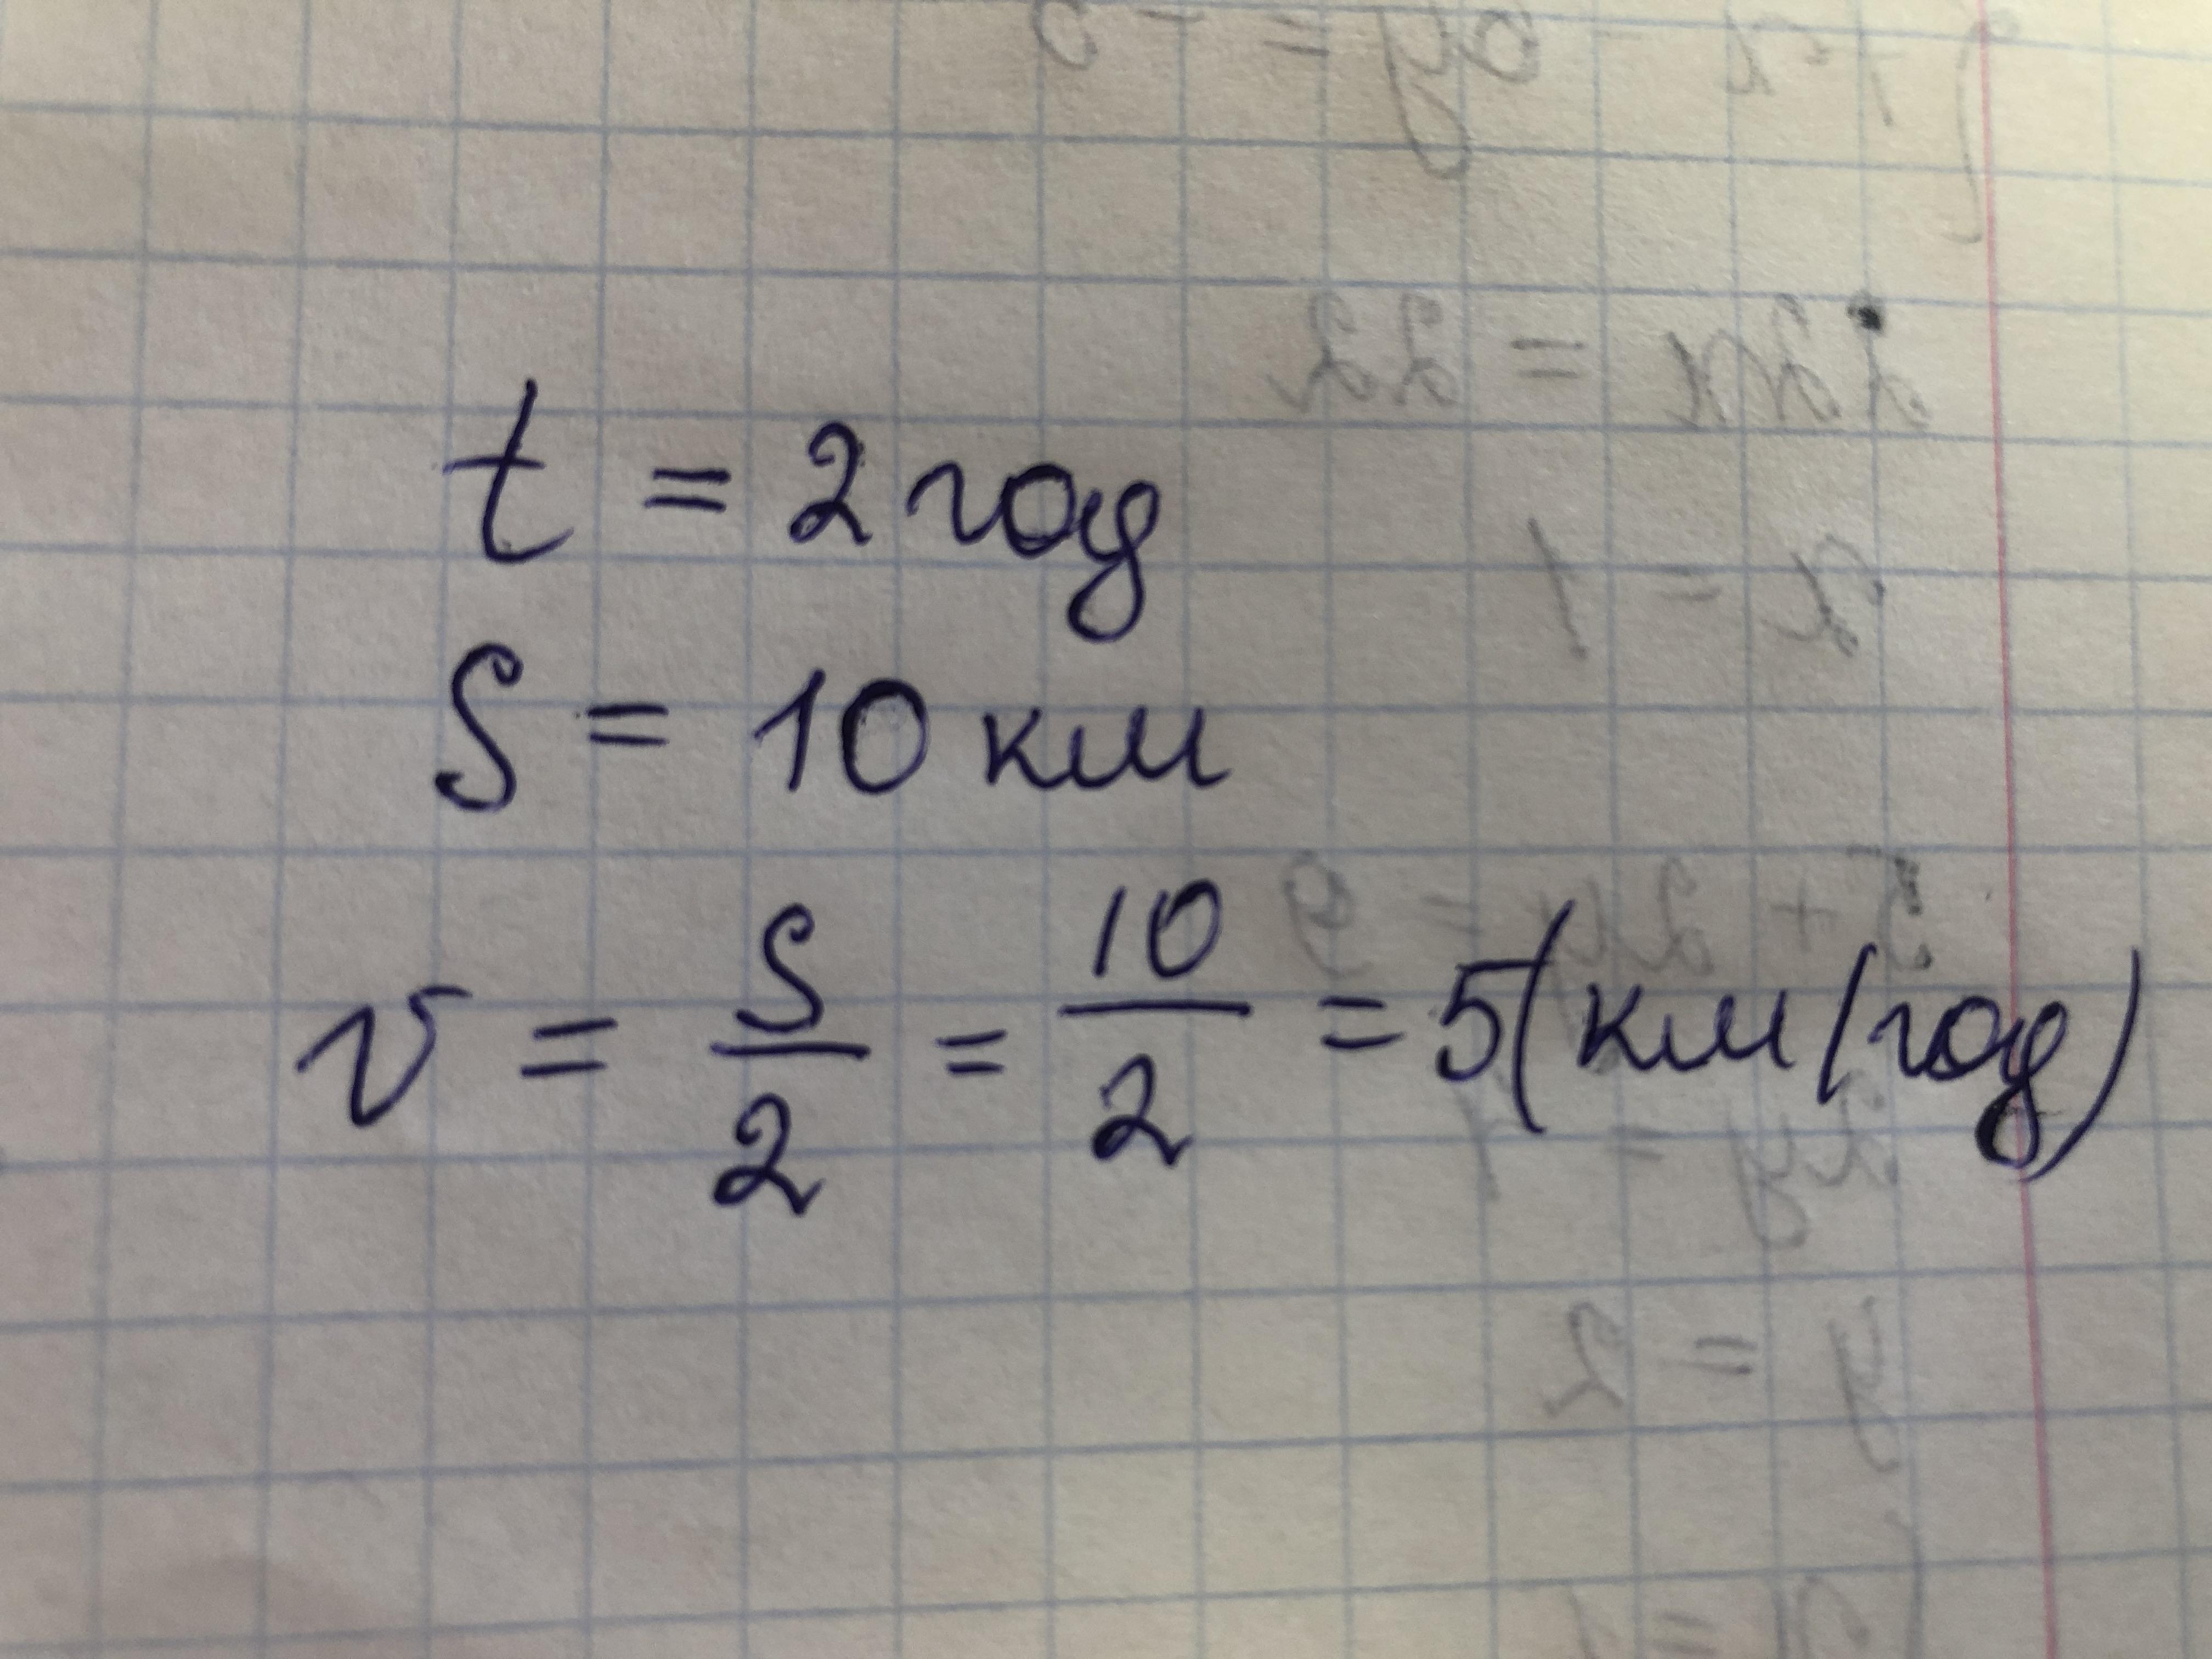 t = 2 год
S = 10 км
v = S/2 = 10/2 = 5(км/год)